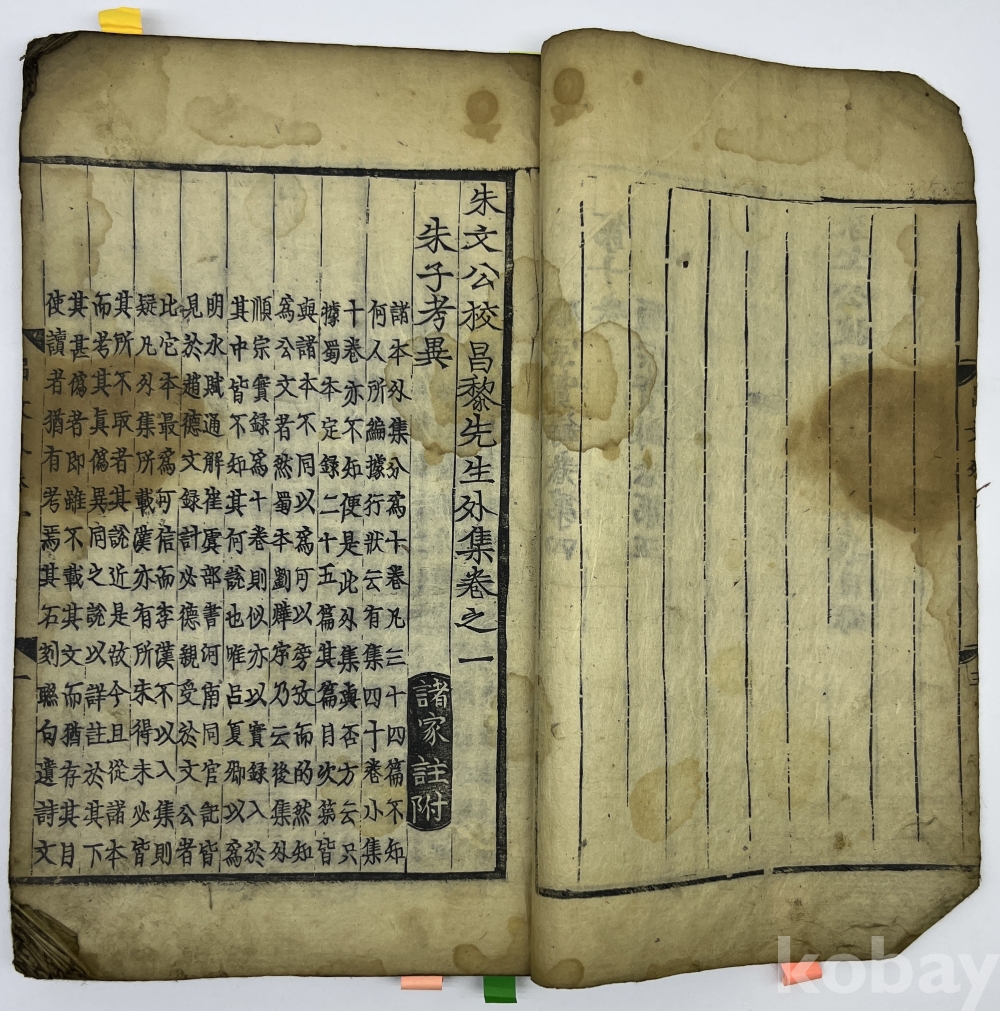 朱文公校昌黎先生外集卷之一
朱子考異
諸家註附
諸本外集分爲十卷凡三十四篇不知
何人所編據行狀云有集四十卷小集
十卷亦不知便是此外集與否方云只
據蜀本定録二十五篇其篇目次第皆
與諸本不同以爲可以旁攷而的然知
爲公文者然蜀本劉燁序乃云後集外
順宗實録爲十卷則似亦以實録入於
其中皆不知其何說也唯呂夏卿以爲
明水賦通解崔虞部書河南同官記皆
見於趙德文録計必德親受於文公者
比它本最爲可信而李漢不以入集則
疑凡外集所載漢亦有所未得未必皆
其所不取者其說近是故今且從諸本
而考其真僞異同之說以詳註於其下
其甚僞者即雖不載其文而猶存其目
使讀者猶有考焉其石刻聯句遺詩文
kobay